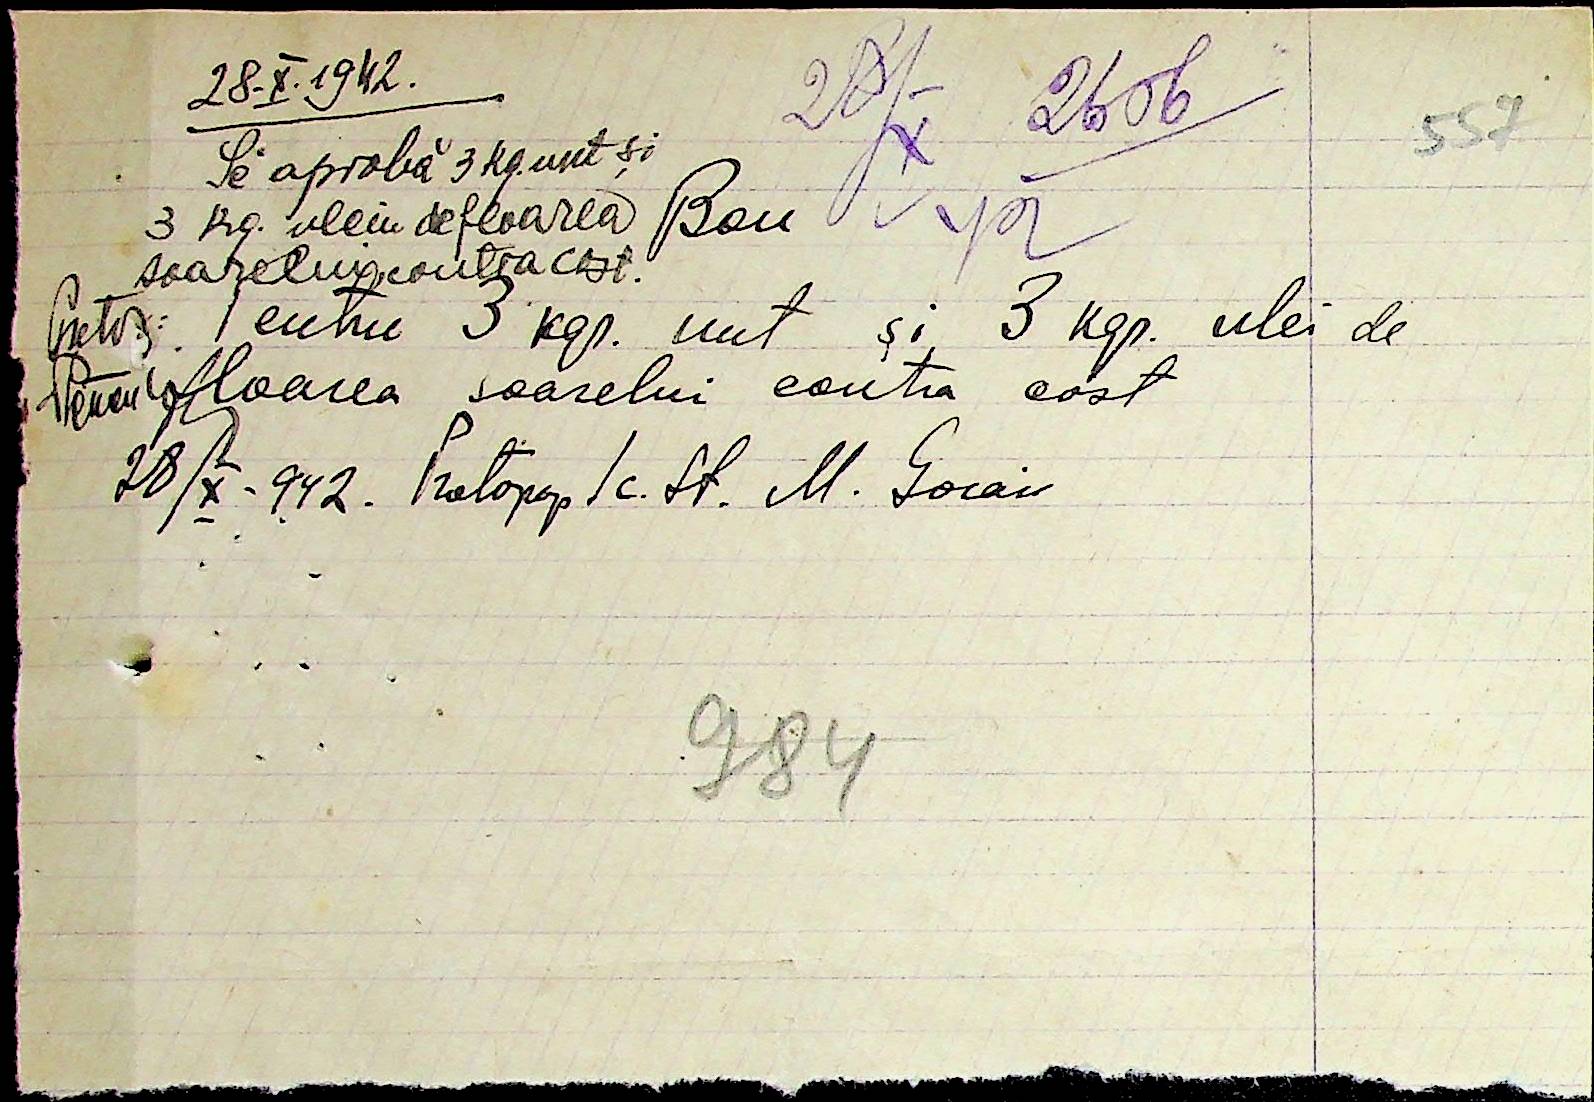 28-X-1942.
28/X 2606
557
Se aprobă 3 kg. unt și
3 kg. uleiu de floarea
soarelui, contra cost.
Bon
Pretor:
Pentru 3 kgr. unt și 3 kgr. ulei de
floarea soarelui contra cost
28/X-942. Protopop Ic. St. M.
984